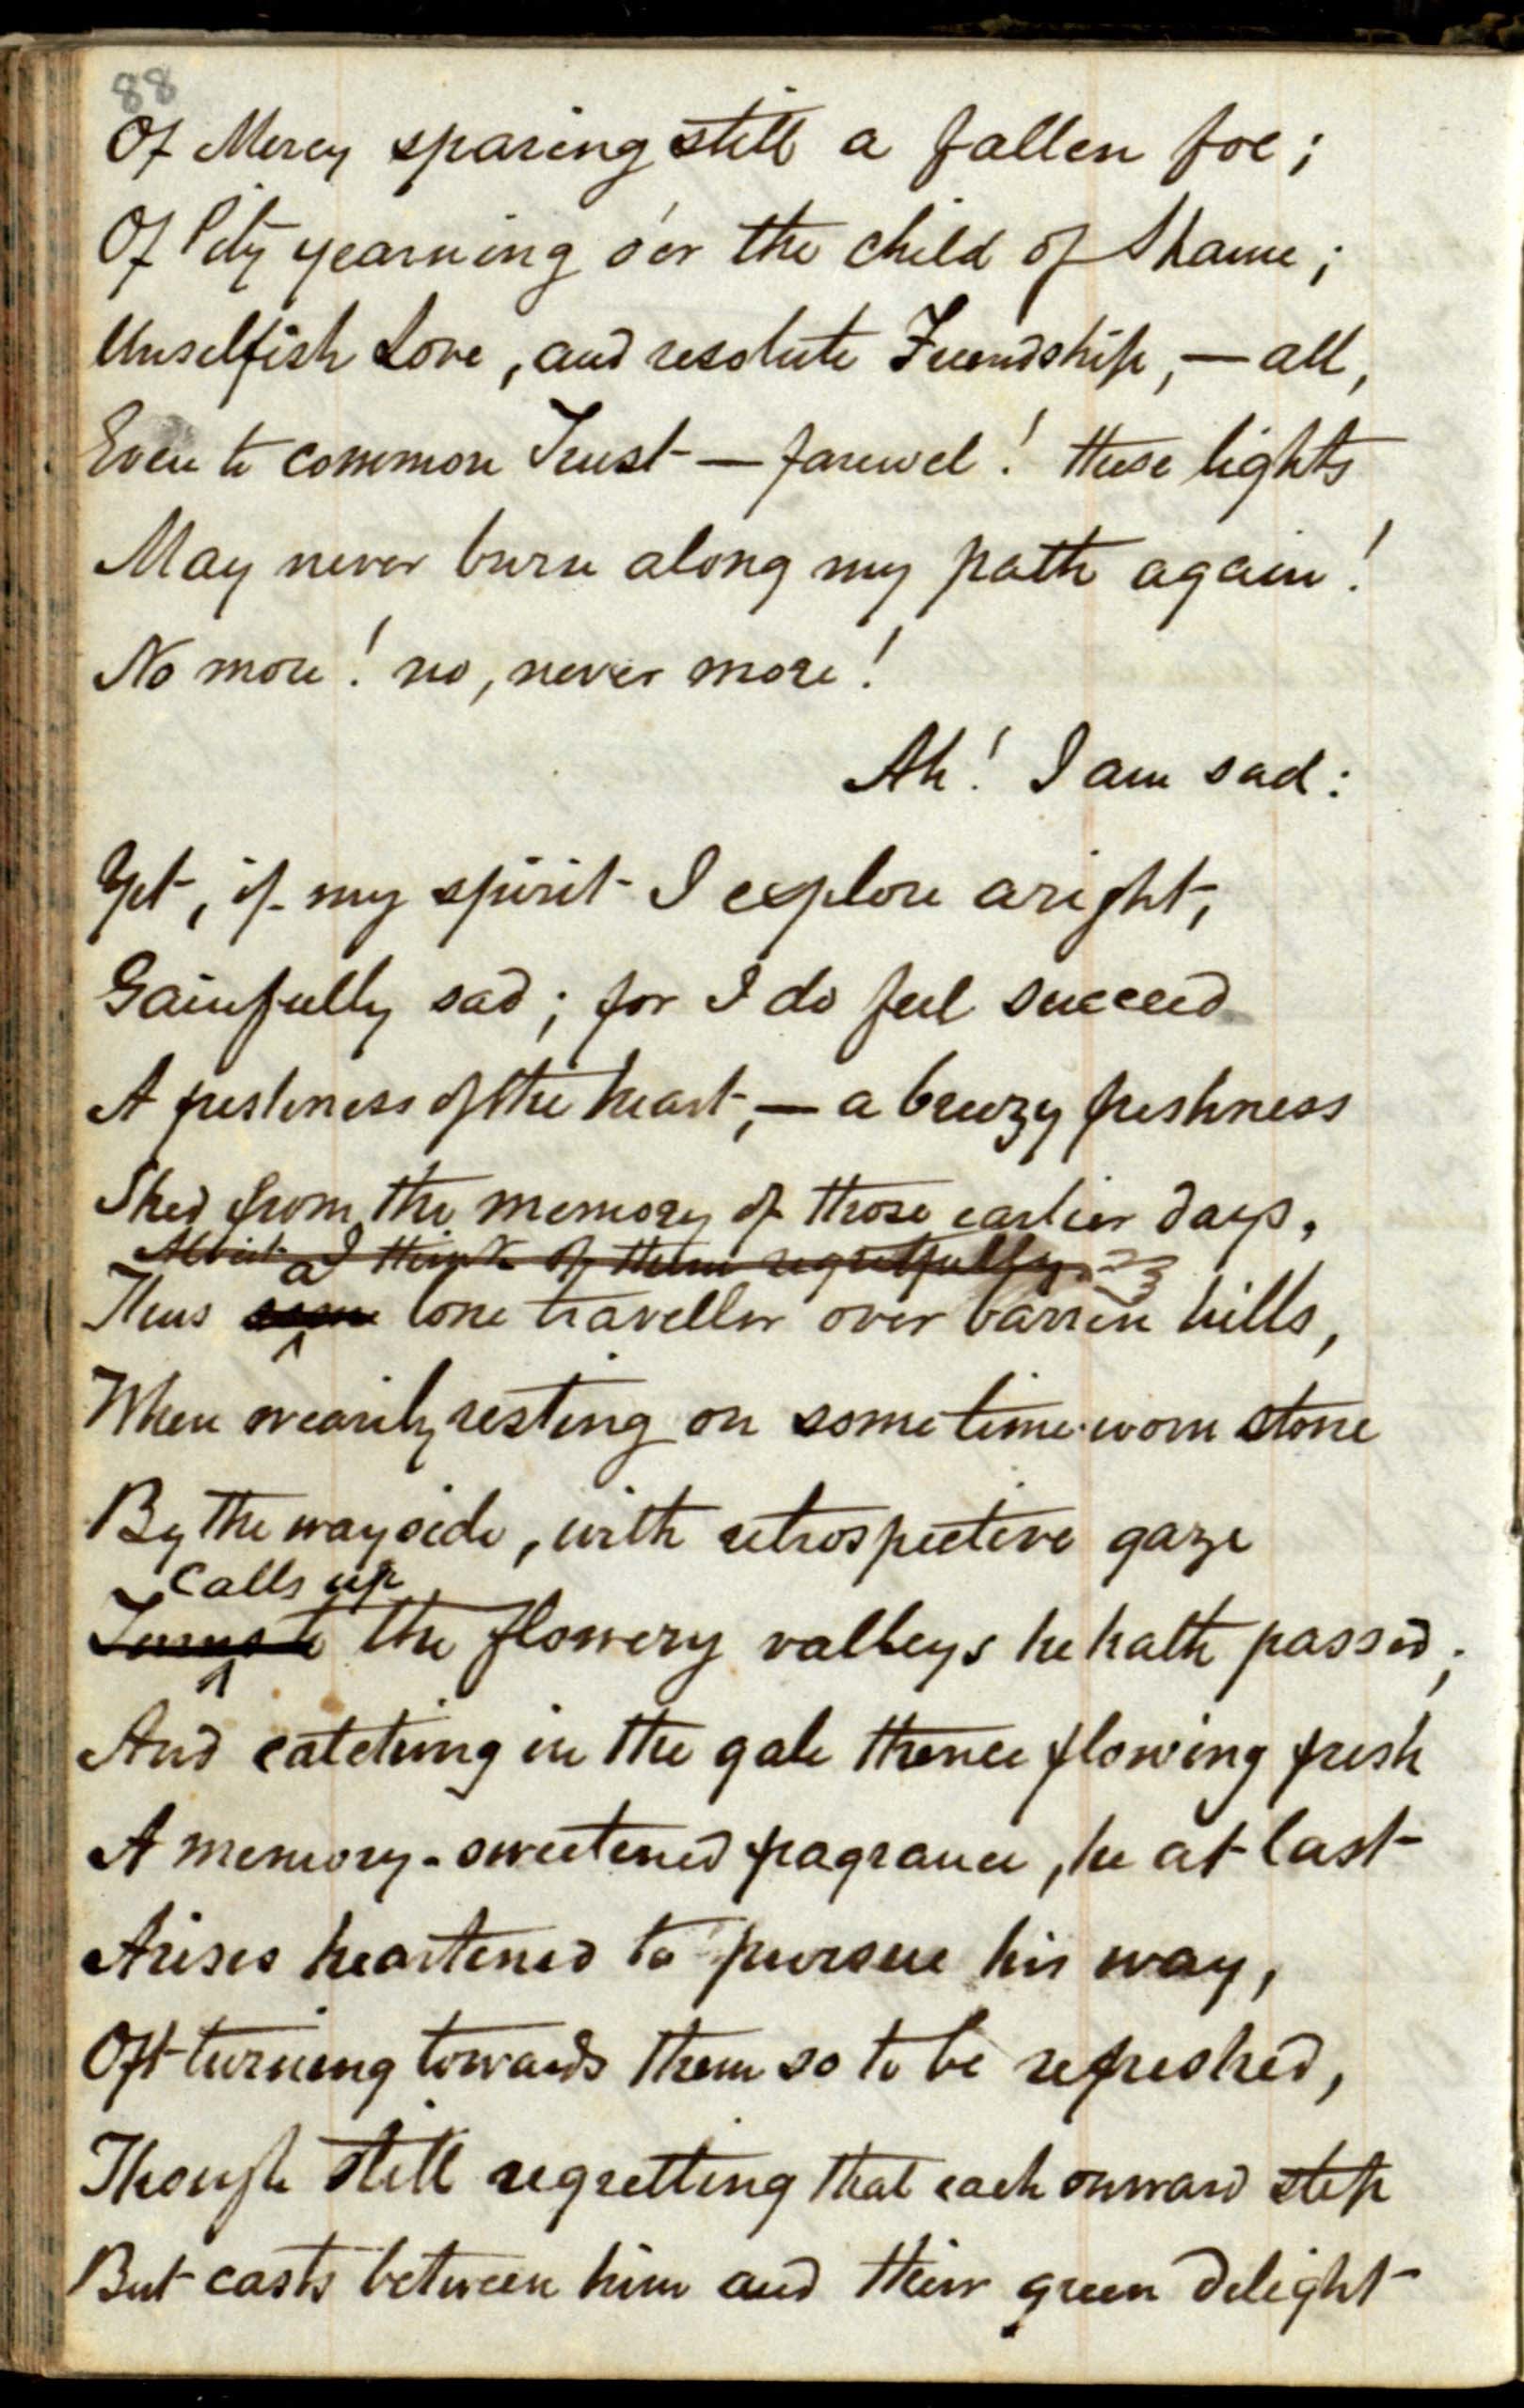 88
Of Mercy sparing still a fallen foe;
Of Pity yearning o'er the child of Shame;
Unselfish Love, and resolute Friendship,—all,
Even to common Trust—farewel! these lights
May never burn along my path again!
No more! no, never more!
Ah! I am sad:
Yet, if my spirit I explore aright,
Gainfully sad; for I do feel succeed
A freshness of the heart,—a breezy freshness
Shed from the memory of those earlier days,
Albeit I think of them regretfully.
a
Thus some lone traveller over barren hills,
When wearily resting on some time-worn stone
By the wayside, with retrospective gaze
Calls up
Turns to the flowery valleys he hath passed;
And catching in the gale thence flowing fresh
A memory-sweetened fragrance, he at last
Arises heartened to pursue his way,
Oft turning towards them so to be refreshed,
Though still regretting that each onward step
But casts between him and their green delight